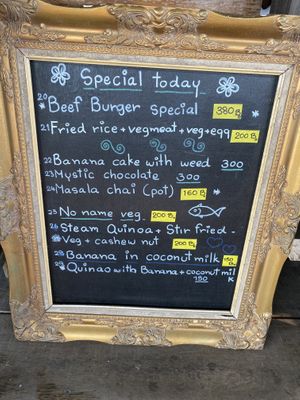 Special today
20 Beef Burger special 380 ฿
21 Fried rice + vegmeat + veg + egg 200 ฿
22 Banana cake with weed 300
23 Mystic chocolate 300
24 Masala chai (pot) 160 ฿
25 No name veg. 200 ฿
26 Steam Quinoa + Stir fried -
Veg + cashew nut 200 ฿
28 Banana in coconut milk 150 ฿
29 Quinao with Banana + coconut mil
150 K